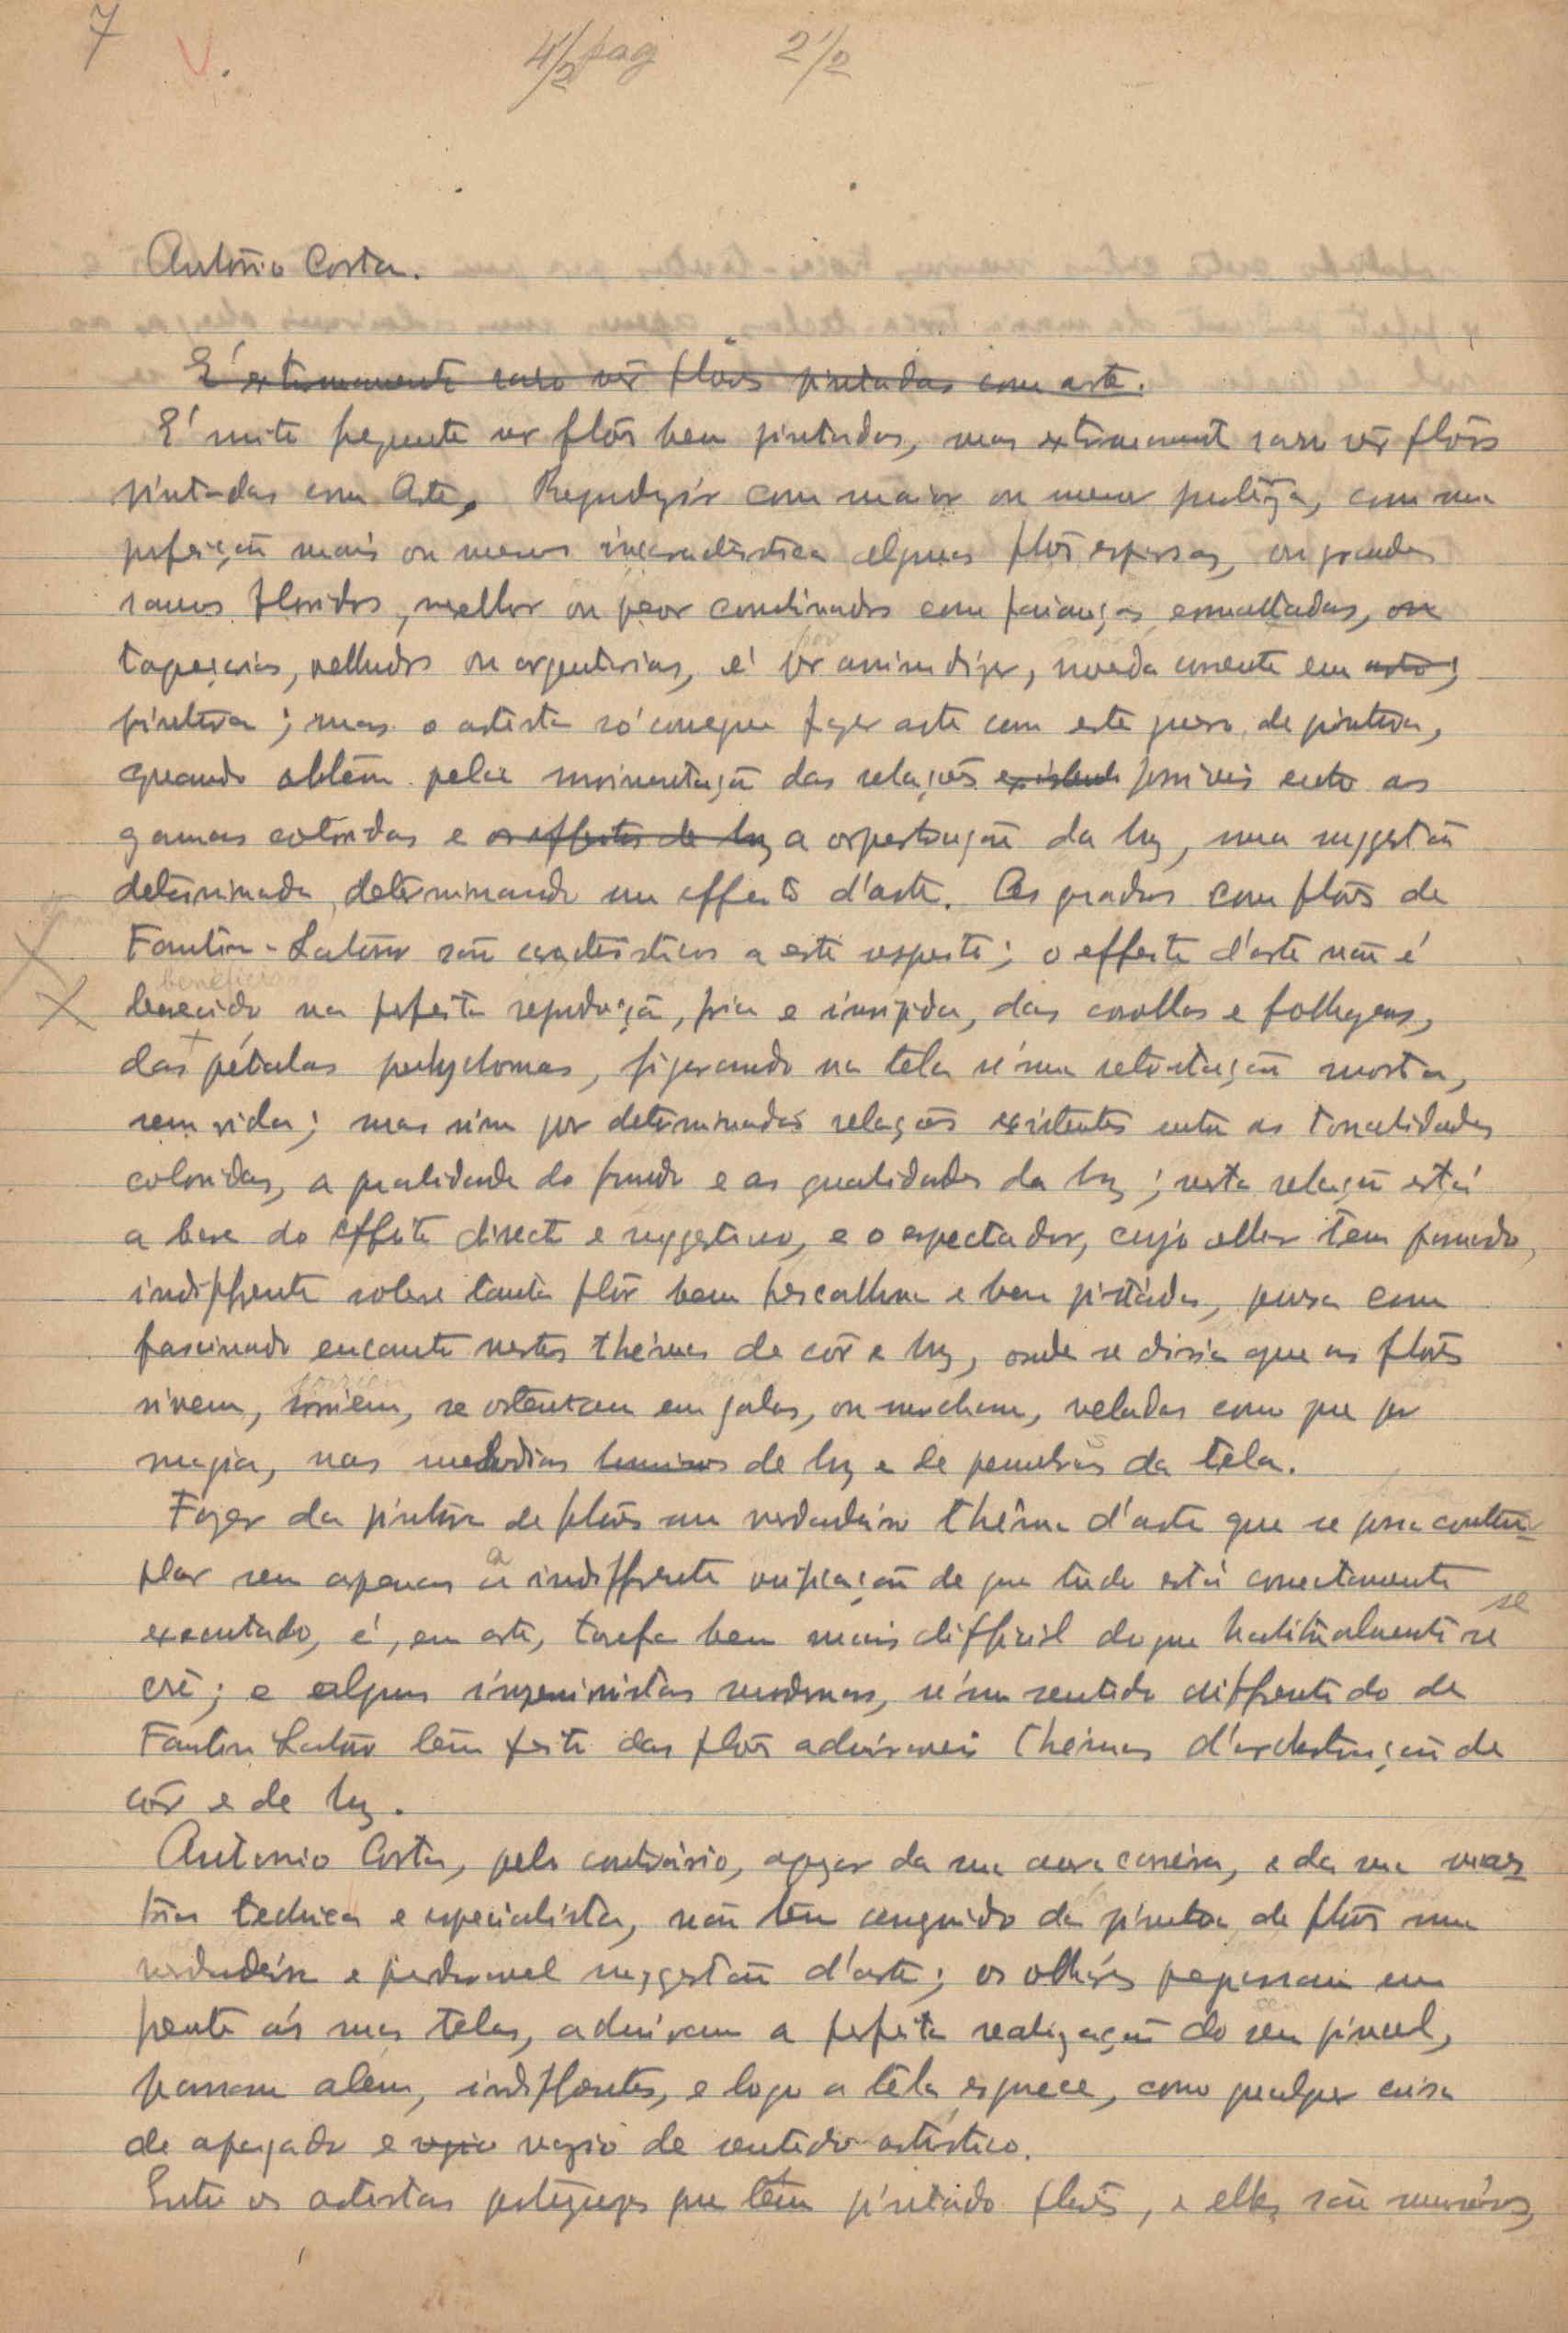 7 V. 4 1/2 pag 2 1/2
António Costa.
E' extremamente raro vêr flôres pintadas com arte.
E' muito frequente ver flôres bem pintadas, mas extremamente raro vêr flôres
pintadas com Arte. Reproduzir com maior ou menor justêza, com uma
perfeição mais ou menos incaracterística algumas flôres esparsas, ou grandes
ramos floridos, melhor ou peor combinados com faianças esmaltadas, ou
tapeçarias, velludos ou argentarias, é por assim dizer, moeda corrente em arte;
pintura; mas o artista só consegue fazer arte com este genero de pintura,
quando obtêm pela movimentação das relações existentes possiveis entre as
gamas coloridas e os effeitos de luz a orquestração da luz, uma suggestão
determinada, determinando um effeito d'arte. Os quadros com flôres de
Fantin-Latour são caracteristicos a este respeito; o effeito d'arte não é
beneficio
na perfeita reprodução, fria e insipida, das corollas e folhagens,
das pétalas polychromas, figurando na tela n'uma retratação morta,
sem vida; mas sim por determinadas relações existentes entre as tonalidades
coloridas, a qualidade do fundo e as qualidades da luz; nesta relação está
a base do effeito directo e suggestivo, e o espectador, cujo olhar tem passado,
indifferente sobre tanta flôr bem e bem pintada, pousa com
fascinado encanto nestes thêmas de côr e luz, onde se diria que as flôres
vivem, sorriem, se ostentam em galas, ou murcham, veladas como que por
magia, nas melodias luminosas de luz e de penumbras da tela.
Fazer da pintura de flôres um verdadeiro thêma d'arte que se possa contem-
plar sem apenas a indifferente verificação de que tudo está correctamente
executado, é, em arte, tarefa bem mais difficil do que habitualmente se
crê; e alguns impressionistas modernos, n'um sentido differente do de
Fantin Latour têm feito das flôres admiraveis thêmas d'orchestração de
côr e de luz.
Antonio Costa, pelo contrário, apezar da sua carreira, e da sua maes-
tria technica e especialista, não têm conseguido da pintura de flôres uma
verdadeira e perduravel suggestão d'arte; os olhares perpassam em
frente ás suas telas, admiram a perfeita realização do seu pincel,
passam além, indifferentes, e logo a téla esquece, como qualquer coisa
de apagado e vazio de sentido artistico.
Entre os artistas portuguezes que têm pintado flôres, e elles são numerosos,